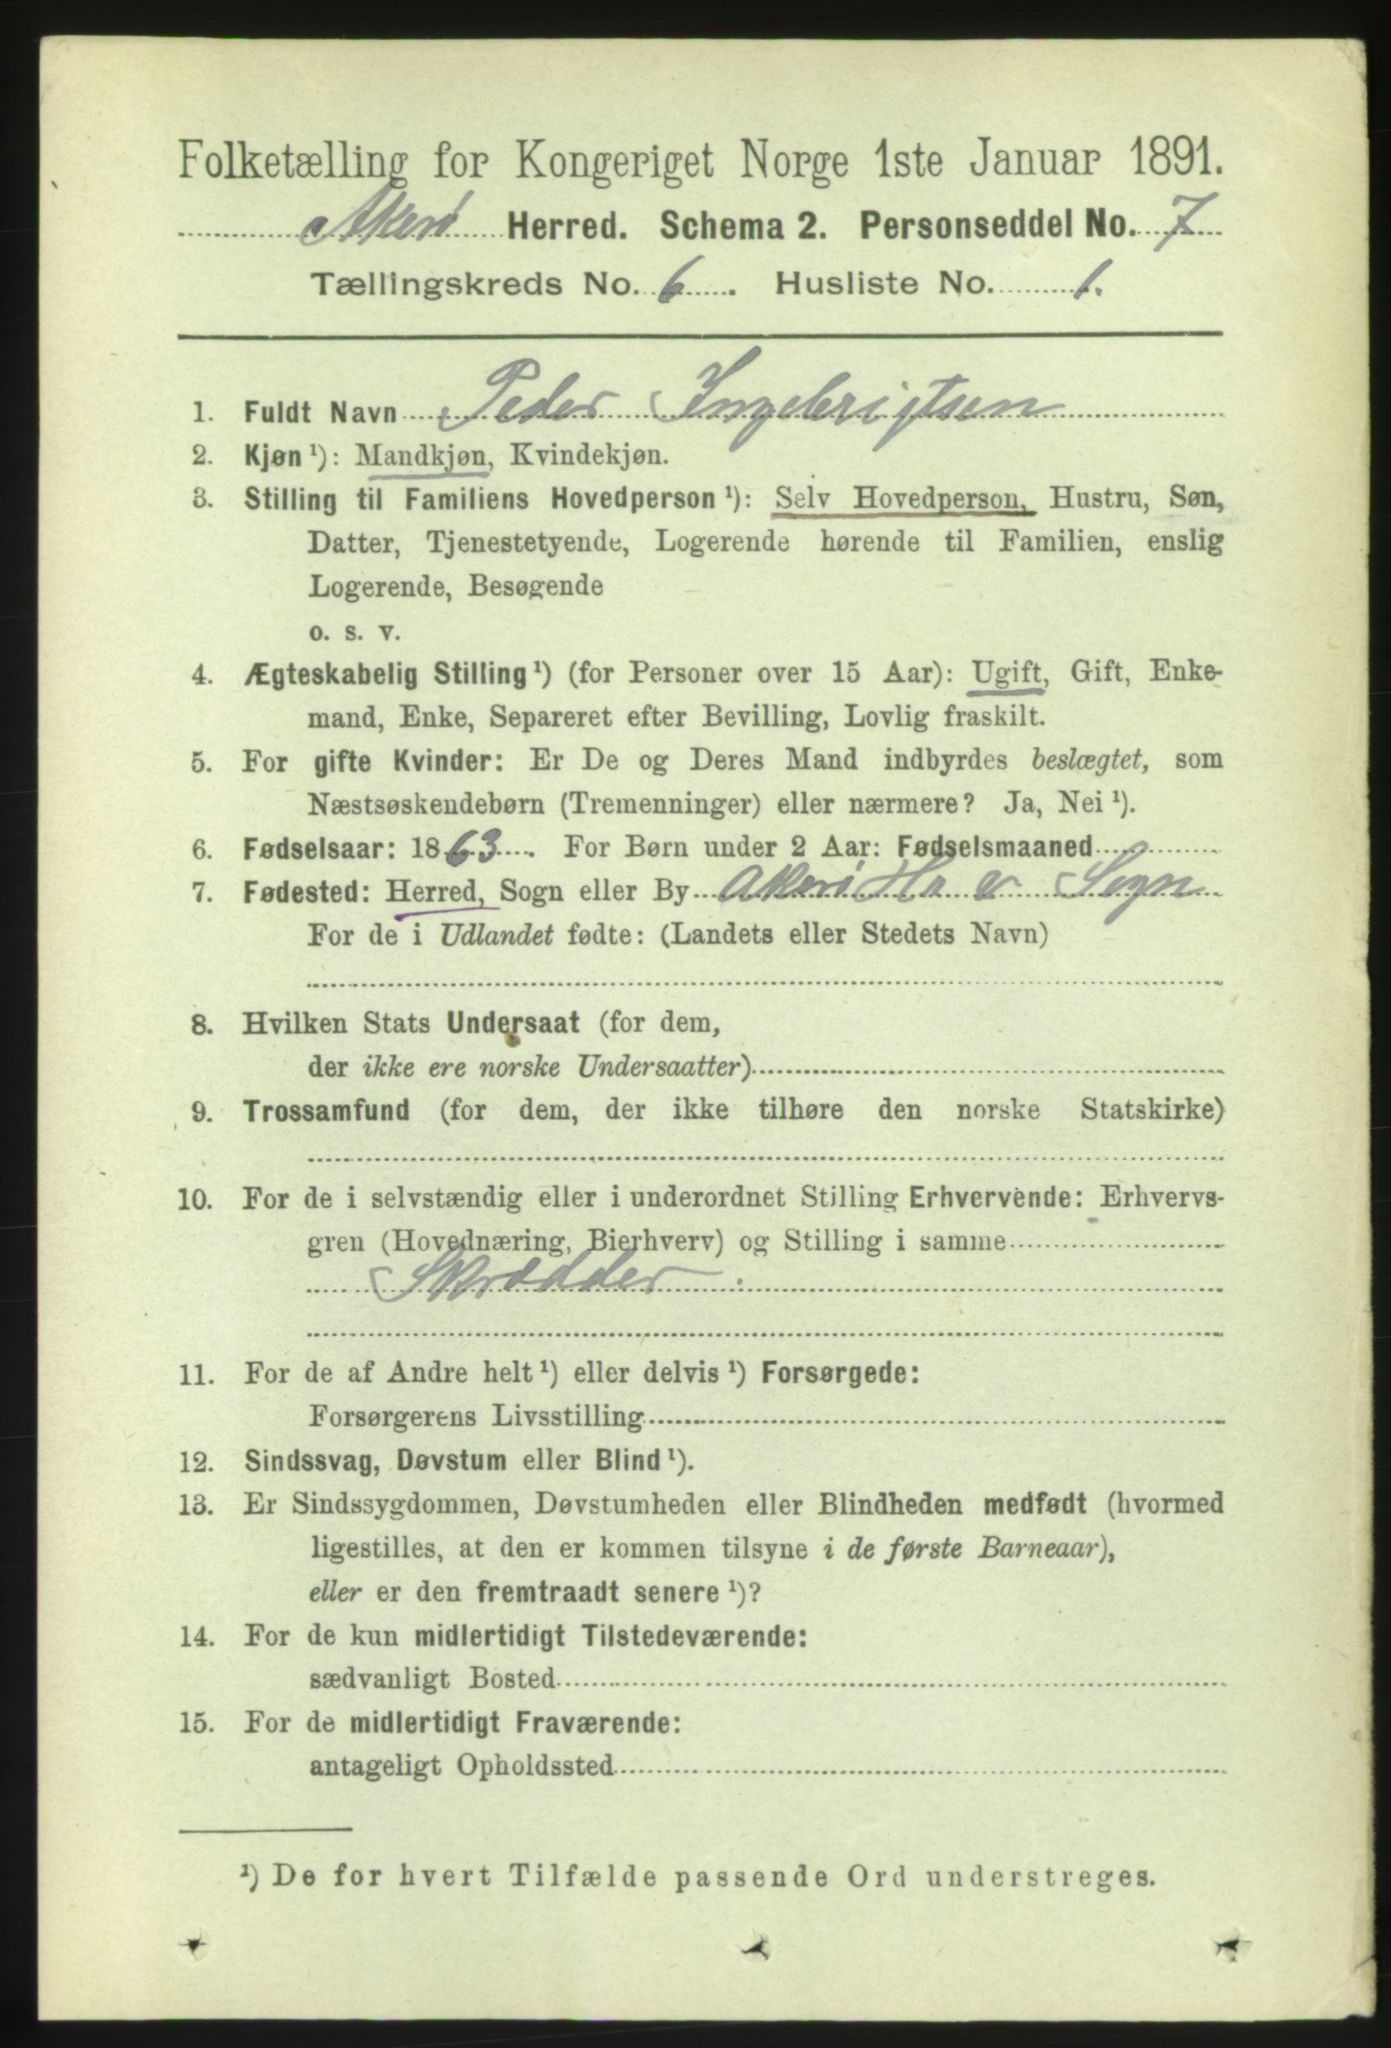 Folketælling for Kongeriget Norge 1ste Januar 1891.
Akerø Herred. Schema 2. Personseddel No. 7
Tællingskreds No. 6. Husliste No. 1.
1. Fuldt Navn Peder Ingebrigtsen
2. Kjøn ¹): Mandkjøn, Kvindekjøn.
3. Stilling til Familiens Hovedperson ¹): Selv Hovedperson, Hustru, Søn,
Datter, Tjenestetyende, Logerende hørende til Familien, enslig
Logerende, Besøgende
o. s. v.
4. Ægteskabelig Stilling ¹) (for Personer over 15 Aar): Ugift, Gift, Enke-
mand, Enke, Separeret efter Bevilling, Lovlig fraskilt.
5. For gifte Kvinder: Er De og Deres Mand indbyrdes beslægtet, som
Næstsøskendebørn (Tremenninger) eller nærmere? Ja, Nei ¹).
6. Fødselsaar: 1863. For Børn under 2 Aar: Fødselsmaaned
7. Fødested: Herred, Sogn eller By Akerø Hr & Sogn
For de i Udlandet fødte: (Landets eller Stedets Navn)
8. Hvilken Stats Undersaat (for dem,
der ikke ere norske Undersaatter)
9. Trossamfund (for dem, der ikke tilhøre den norske Statskirke)
10. For de i selvstændig eller i underordnet Stilling Erhvervende: Erhvervs-
gren (Hovednæring, Bierhverv) og Stilling i samme
Skrædder
11. For de af Andre helt ¹) eller delvis ¹) Forsørgede:
Forsørgerens Livsstilling
12. Sindssvag, Døvstum eller Blind ¹).
13. Er Sindssygdommen, Døvstumheden eller Blindheden medfødt (hvormed
ligestilles, at den er kommen tilsyne i de første Barneaar),
eller er den fremtraadt senere ¹)?
14. For de kun midlertidigt Tilstedeværende:
sædvanligt Bosted
15. For de midlertidigt Fraværende:
antageligt Opholdssted
¹) De for hvert Tilfælde passende Ord understreges.